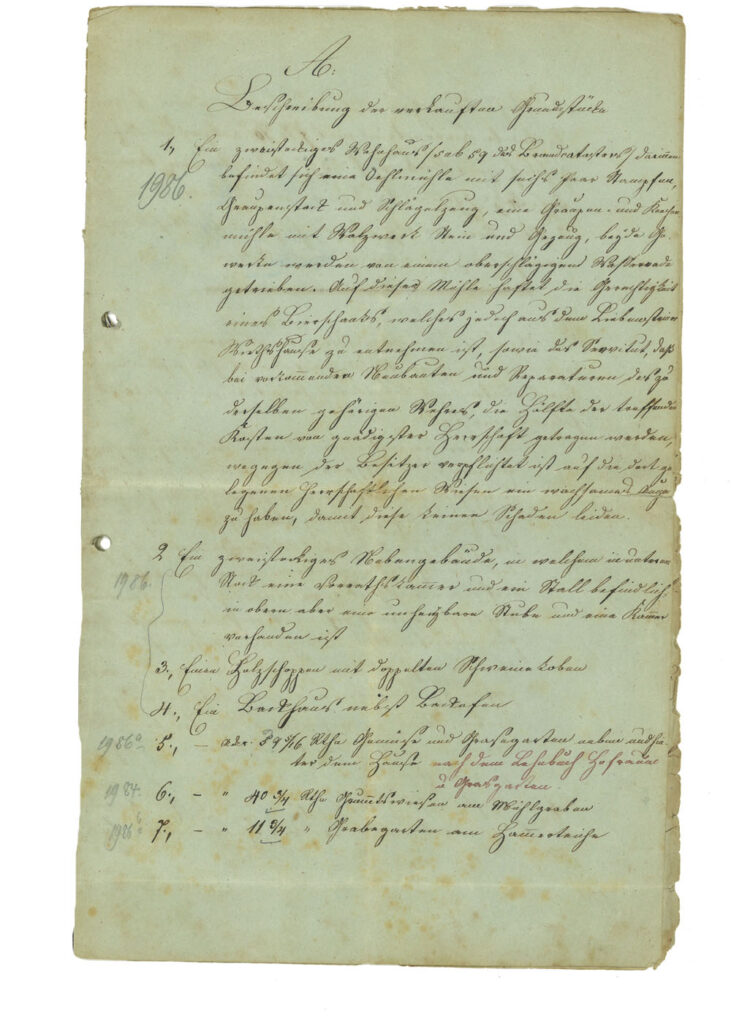 A:
Beschreibung der verkauften Grundstücke
1., Ein zweistockiges Wohnhaus /: sub 59 des Brandcatasters/ darinnen
1986.
befindet sich eine Oehlmühle mit sechs Paar Stampfen,
Graupenstock und Schlägelzeug, eine Graupen- und
mühle mit Walzwerk Stein und Gezeug, beyde Ge-
werke werden von einem oberschlägigen Wasserrade
getrieben. Auf dieser Mühle haftet die Gerechtigkeit
eines Bierschanks, welches jedoch aus dem Liebensteiner
Wirthshause zu entnehmen ist, sowie das Servitut, daß
bei vorkommenden Neubauten und Reparaturen des zu
derselben gehörigen Wehres, die Hälfte der treffenden
Kosten von gnädigster Herrschaft getragen werden,
wogegen der Besitzer verpflichtet ist auf die dort ge-
legenen Herrschaftlichen Wiesen ein wachsames Auge
zu haben, damit diese keinen Schaden leiden.
2 Ein zweistockiges Nebengebäude, in welchem im untern
1986.
Stock eine Vorrathskammer und ein Stall befindlich,
im obern aber eine unheizbare Stube und eine Kammer
vorhanden ist
3., Einen Holzschoppen mit doppelten Schweinekoben
4., Ein Backhaus nebst Backofen
1986a 5., — 89 5/16 Rthn Gemüse und Grasegarten neben und hin-
ter dem Hause nach dem Lehnbuch Hofraum
u Grasgarten.
1984. 6., — " 40 3/4 Rthn Grummtswiesen am Mühlgraben
1986 7., — " 11 3/4 " Grabegarten am Hammerteiche